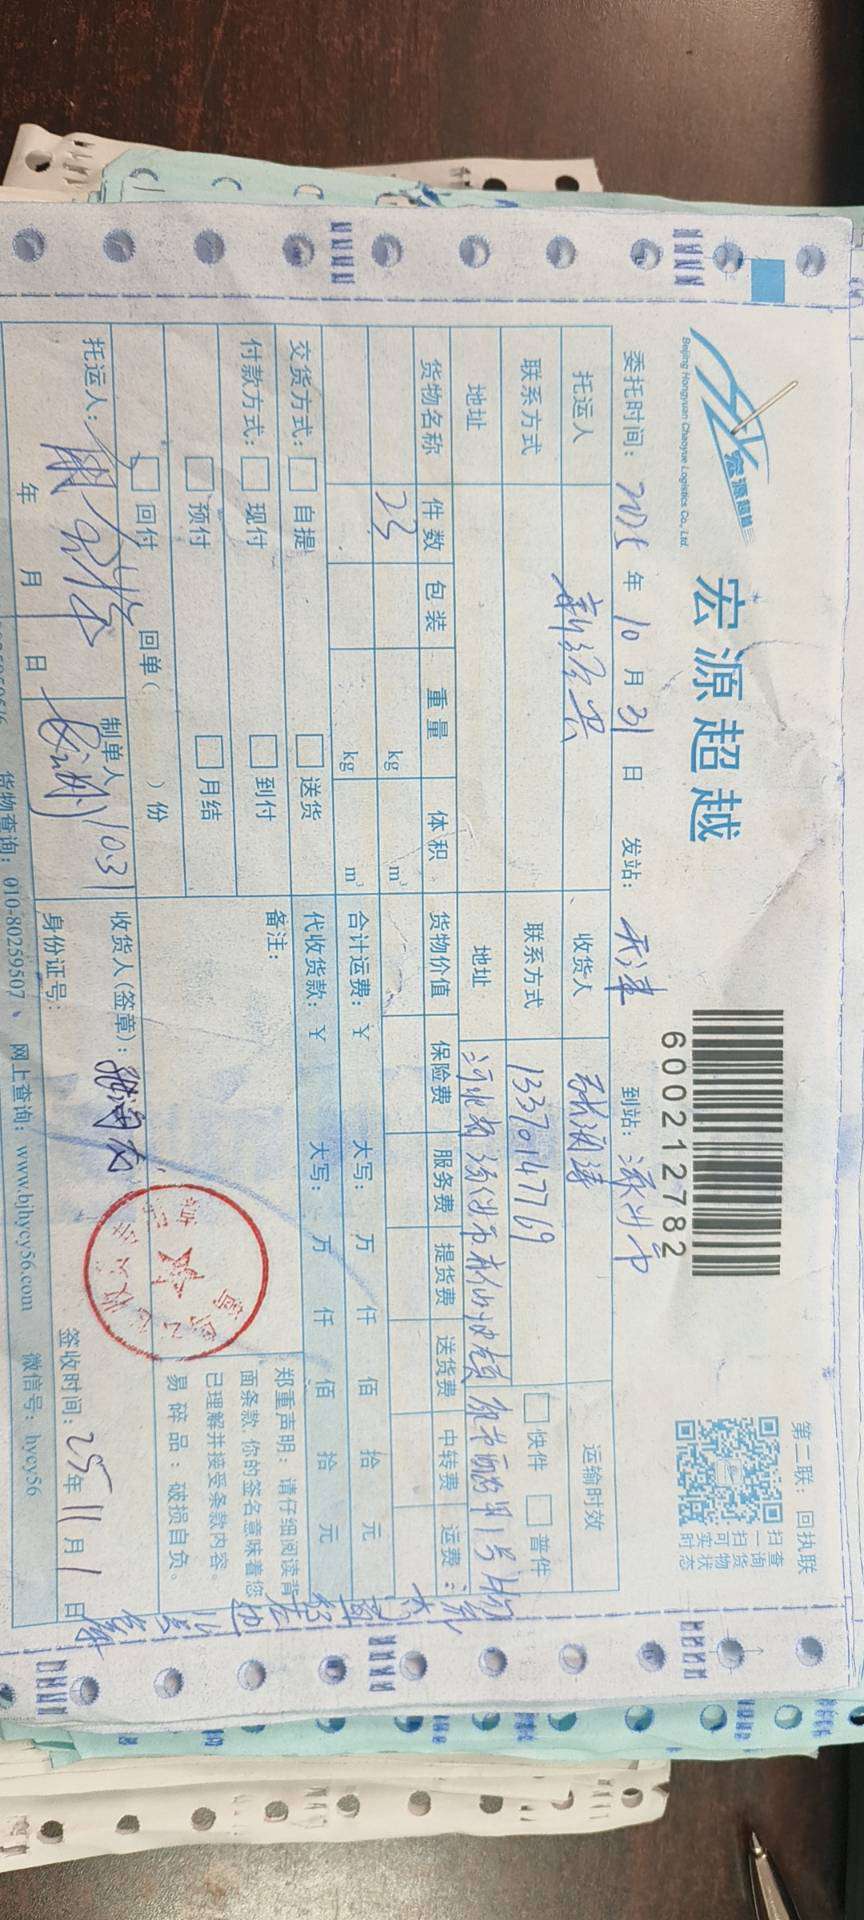 第二联：回执联
宏源超越
Beijing Hongyuan Chaoyue Logistics Co., Ltd.
宏源超越
600212782
扫一扫可查询货物实时状态
委托时间：2025年10月31日 发站：天津 到站：涿州市
托运人 收货人 张润涛 运输时效
联系方式 联系方式 13370147769 快件 普件
地址 地址 河北省
货物名称 件数 包装 重量 体积 货物价值 保险费 服务费 提货费 送货费 中转费 运费
23 kg m³
kg m³ 合计运费：¥ 大写： 万 仟 佰 拾 元
交货方式： 自提 送货 代收货款：¥ 大写： 万 仟 佰 拾 元
付款方式： 现付 到付 备注：
预付 月结
回付 回单( )份
郑重声明：请仔细阅读背面条款，你的签名意味着您已理解并接受条款内容。
易碎品：破损自负。
托运人： 制单人 10.31 收货人(签章)：
年 月 日 身份证号： 签收时间：25年11月1日
货物查询：010-80259507、 网上查询：www.bjhycy56.com 微信号：hycy56